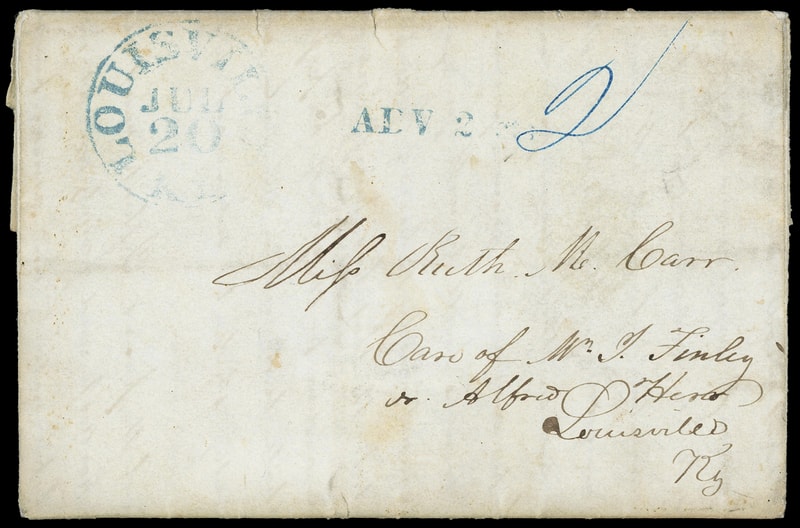 LOUISVIL
JUL
20
ADV 2
2
Miss Ruth M. Carr.
Care of Mr. T. Finley
or Alfred
Louisville
Ky